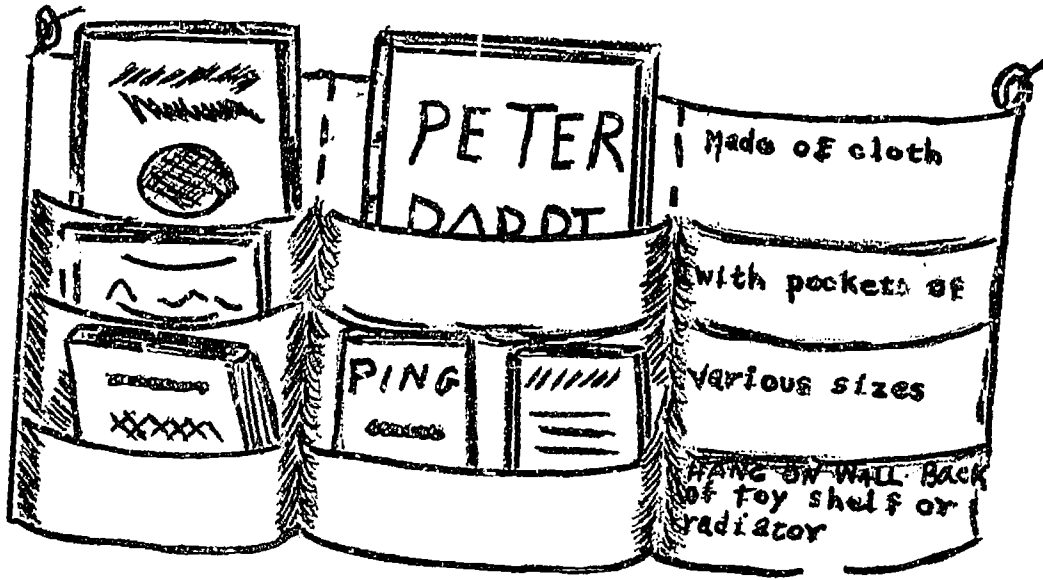 PETER
PING
Made of cloth
with pockets of
various sizes
HANG ON WALL BACK
of toy shelf or
radiator